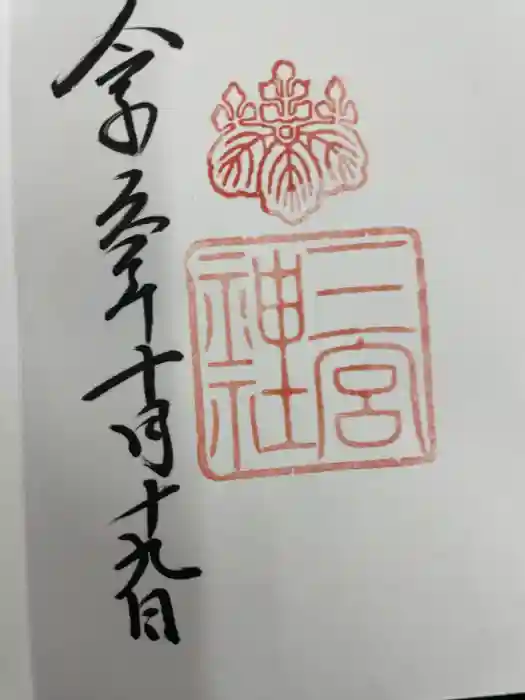 三宮
神社
令和五年十月十九日